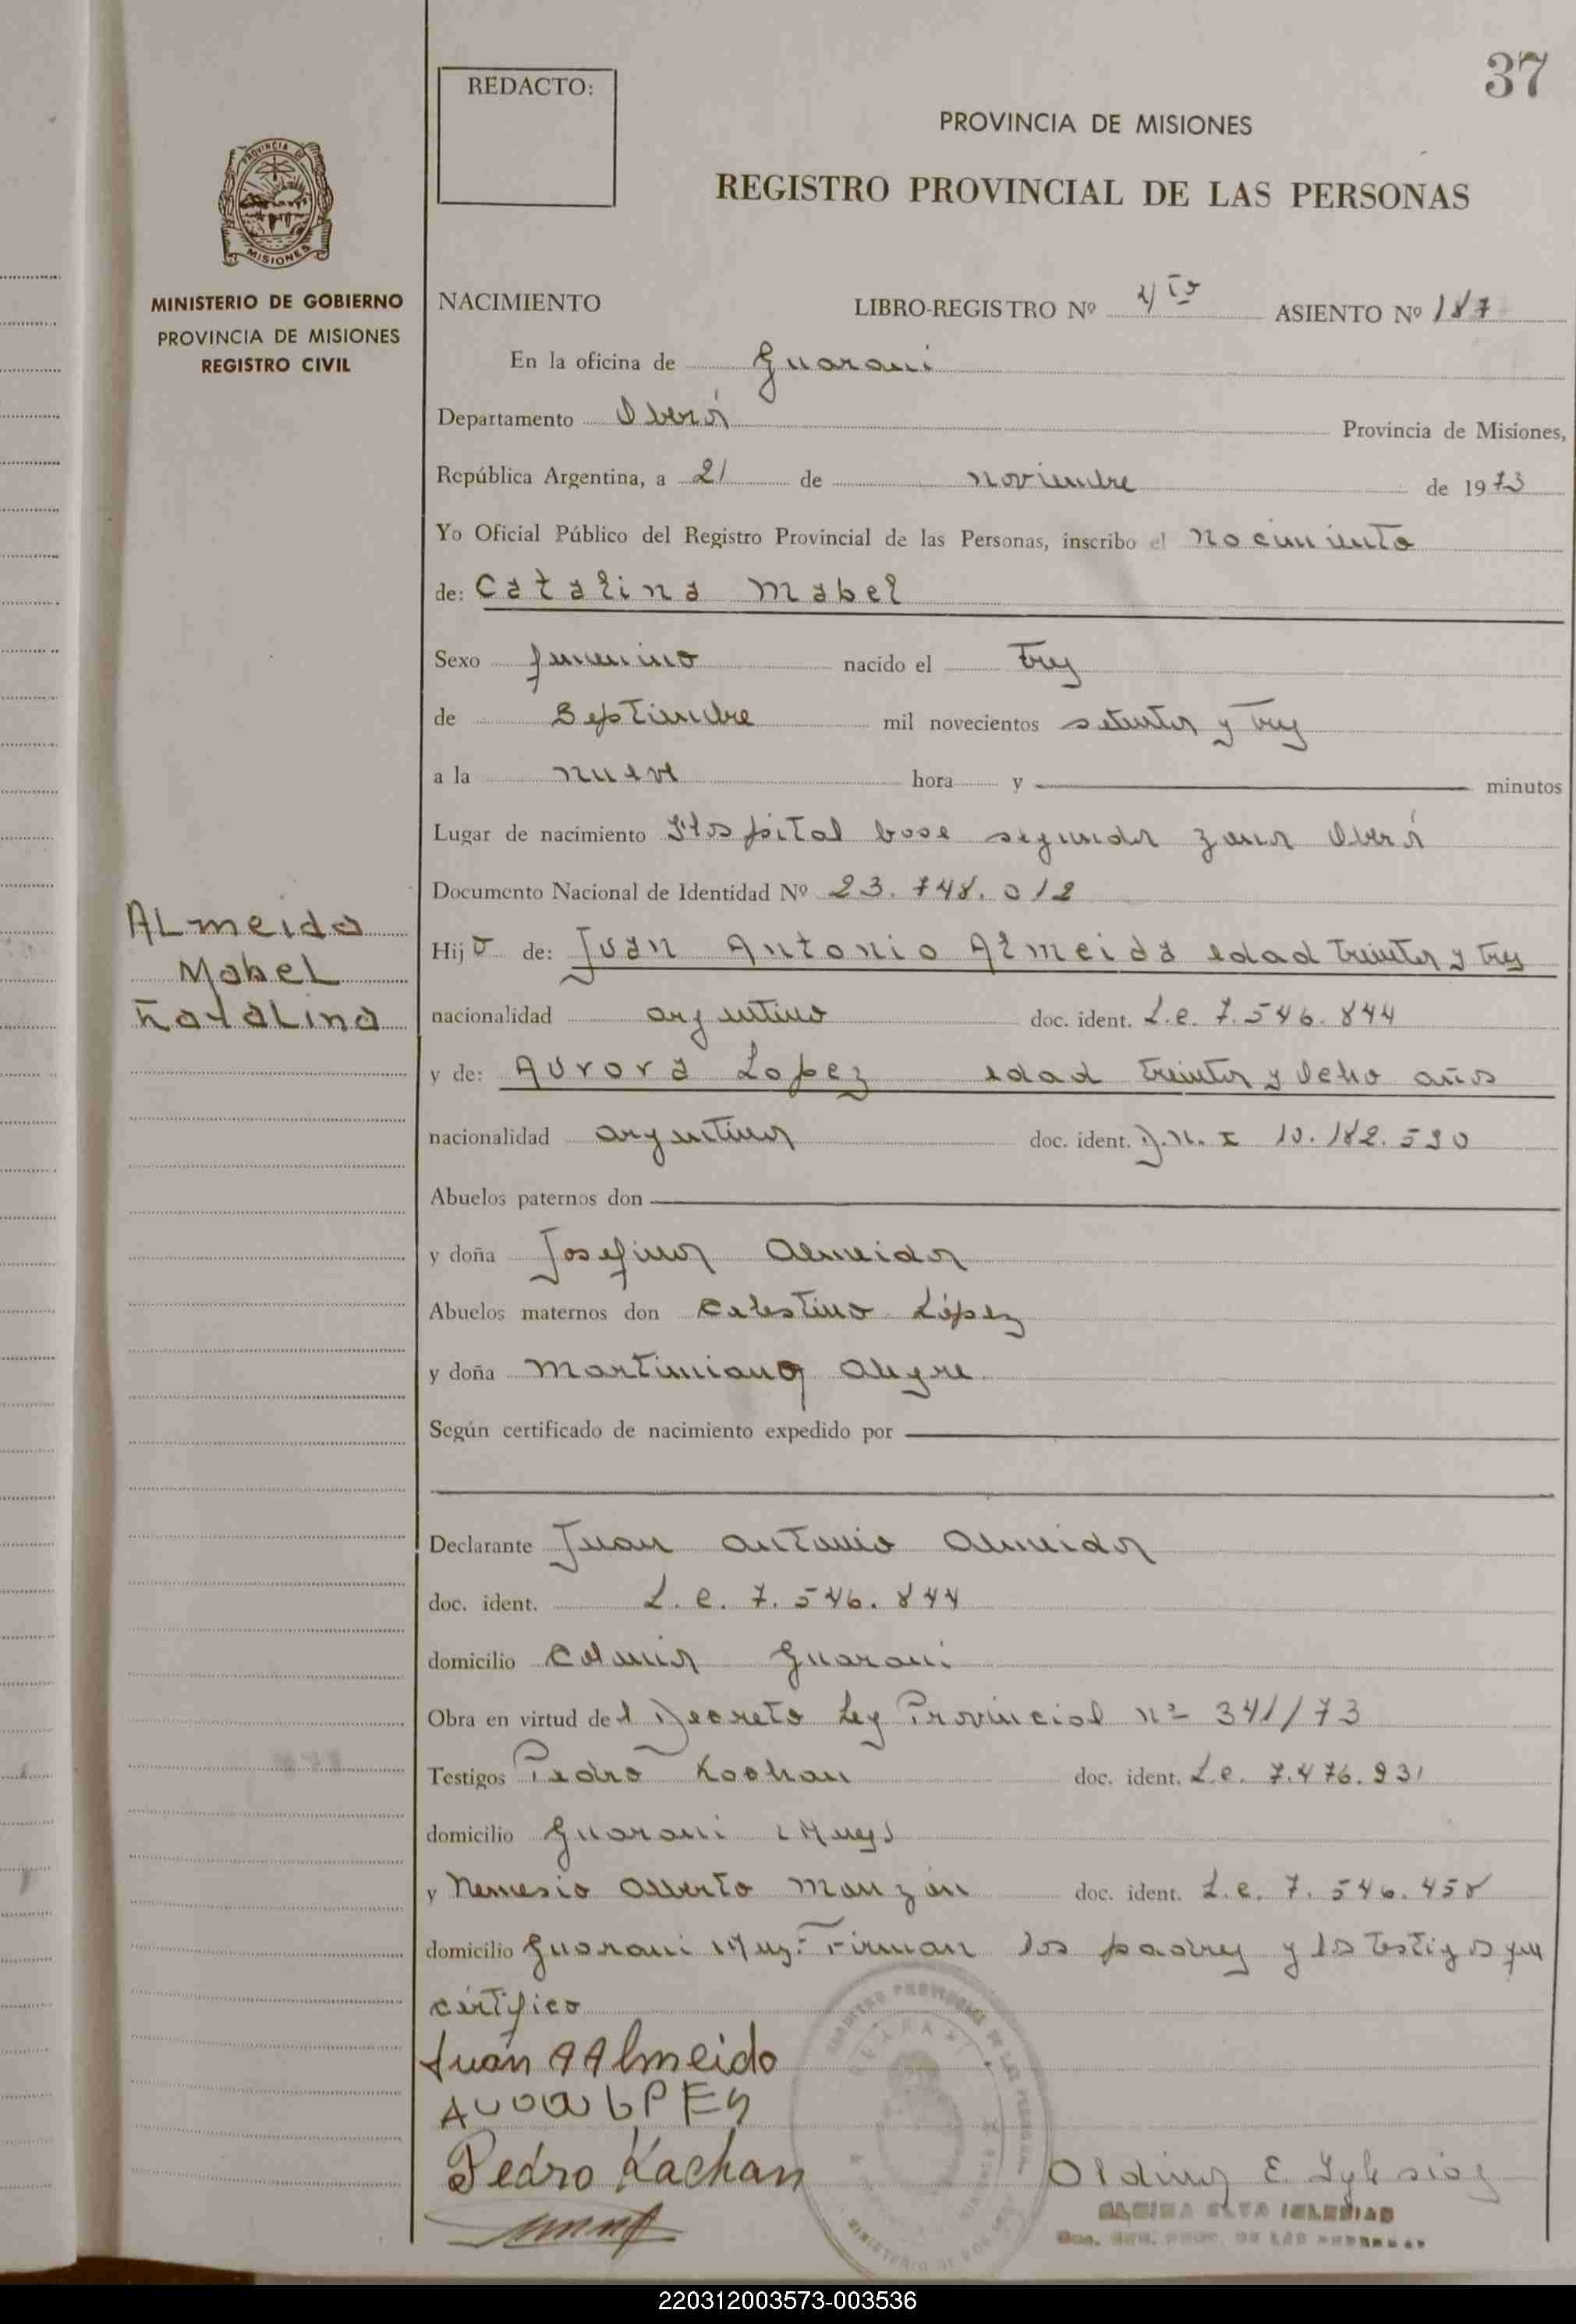 37
REDACTO:
PROVINCIA DE MISIONES
REGISTRO PROVINCIAL DE LAS PERSONAS
PROVINCIA DE
MISIONES
MINISTERIO DE GOBIERNO
PROVINCIA DE MISIONES
REGISTRO CIVIL
NACIMIENTO LIBRO-REGISTRO Nº ASIENTO Nº 187
En la oficina de Guarani
Departamento Oberá Provincia de Misiones,
República Argentina, a 21 de noviembre de 1973
Yo Oficial Público del Registro Provincial de las Personas, inscribo el nacimiento
de: Catalina Mabel
Sexo femenino nacido el tres
de Septiembre mil novecientos setenta y tres
a la nueve hora y minutos
Lugar de nacimiento Hospital base segunda zona Oberá
Documento Nacional de Identidad Nº 23.748.012
ALmeida
Mabel
Katalina
Hij a de: Juan Antonio Almeida edad treinta y tres
nacionalidad argentino doc. ident. L.e. 7.546.844
y de: Aurora Lopez edad treinta y ocho años
nacionalidad argentina doc. ident. D.N.I 10.182.590
Abuelos paternos don
y doña Josefina Almeida
Abuelos maternos don Celestino López
y doña Martiniana Alegre
Según certificado de nacimiento expedido por
Declarante Juan Antonio Almeida
doc. ident. L.e. 7.546.844
domicilio Colonia Guarani
Obra en virtud del Decreto Ley Provincial nº 341/73
Testigos Pedro Kachan doc. ident. L.e. 7.476.931
domicilio Guarani
y Nemesio Alberto Manzán doc. ident. L.e. 7.546.458
domicilio Guarani Firman los padres y los testigos que
certifico
Juan A Almeida
Pedro Kachan
Oldina E. Iglesias
OLDINA ELVA IGLESIAS
220312003573-003536